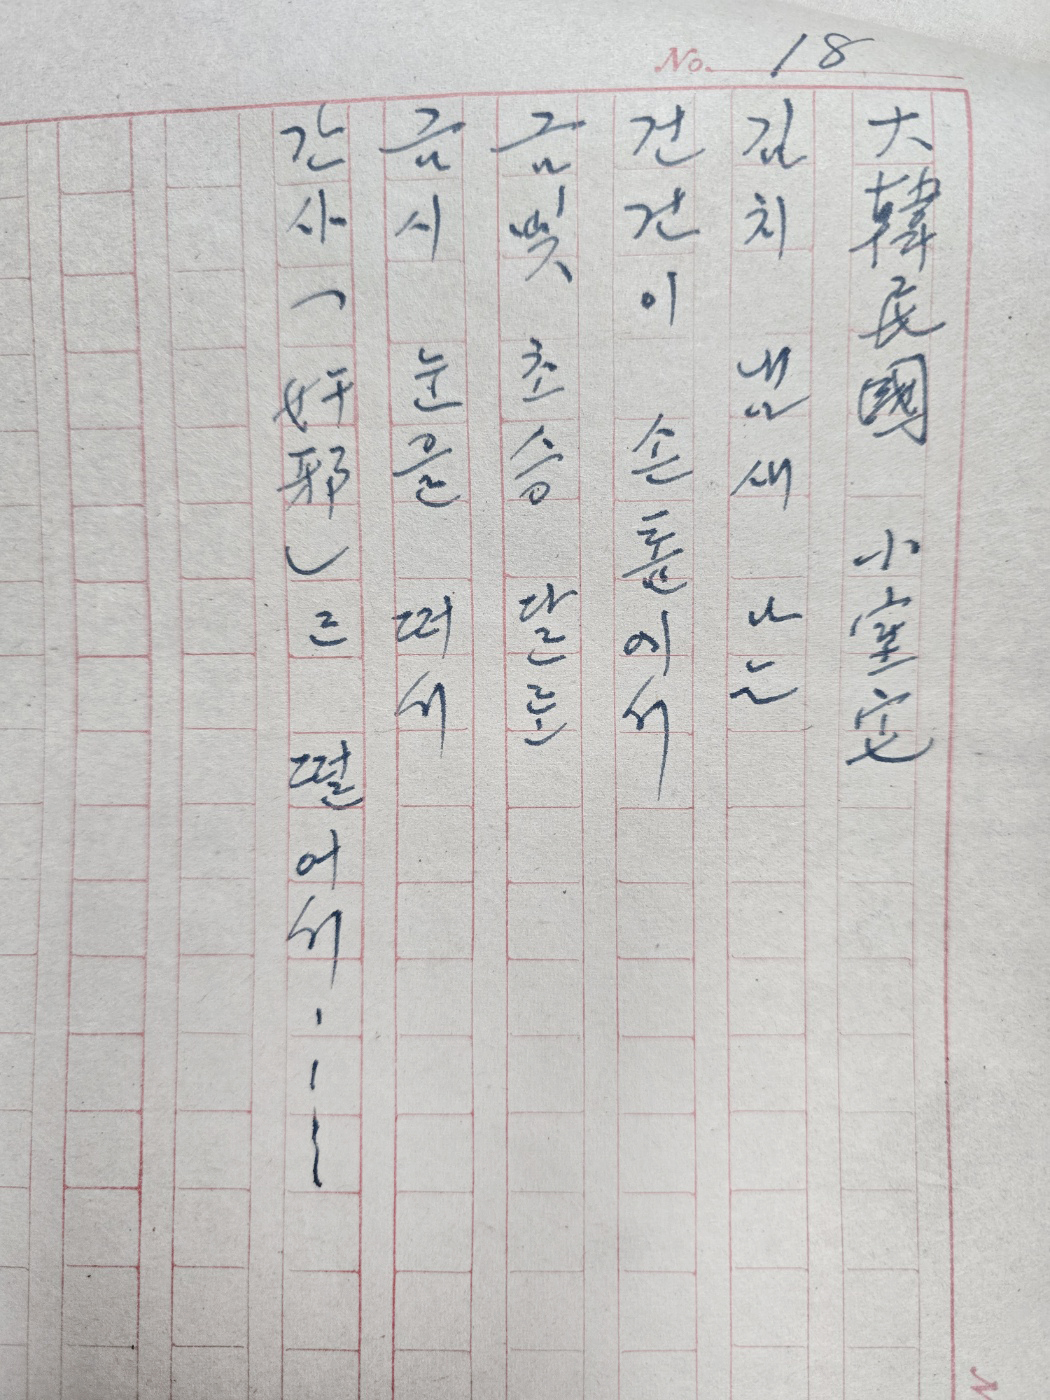 No. 18
大韓民國 小室宅
김치 냄새 나는
건건이 손톱에서
금빛 초승 달로
금시 눈을 떠서
간사(奸邪)르 떨어서